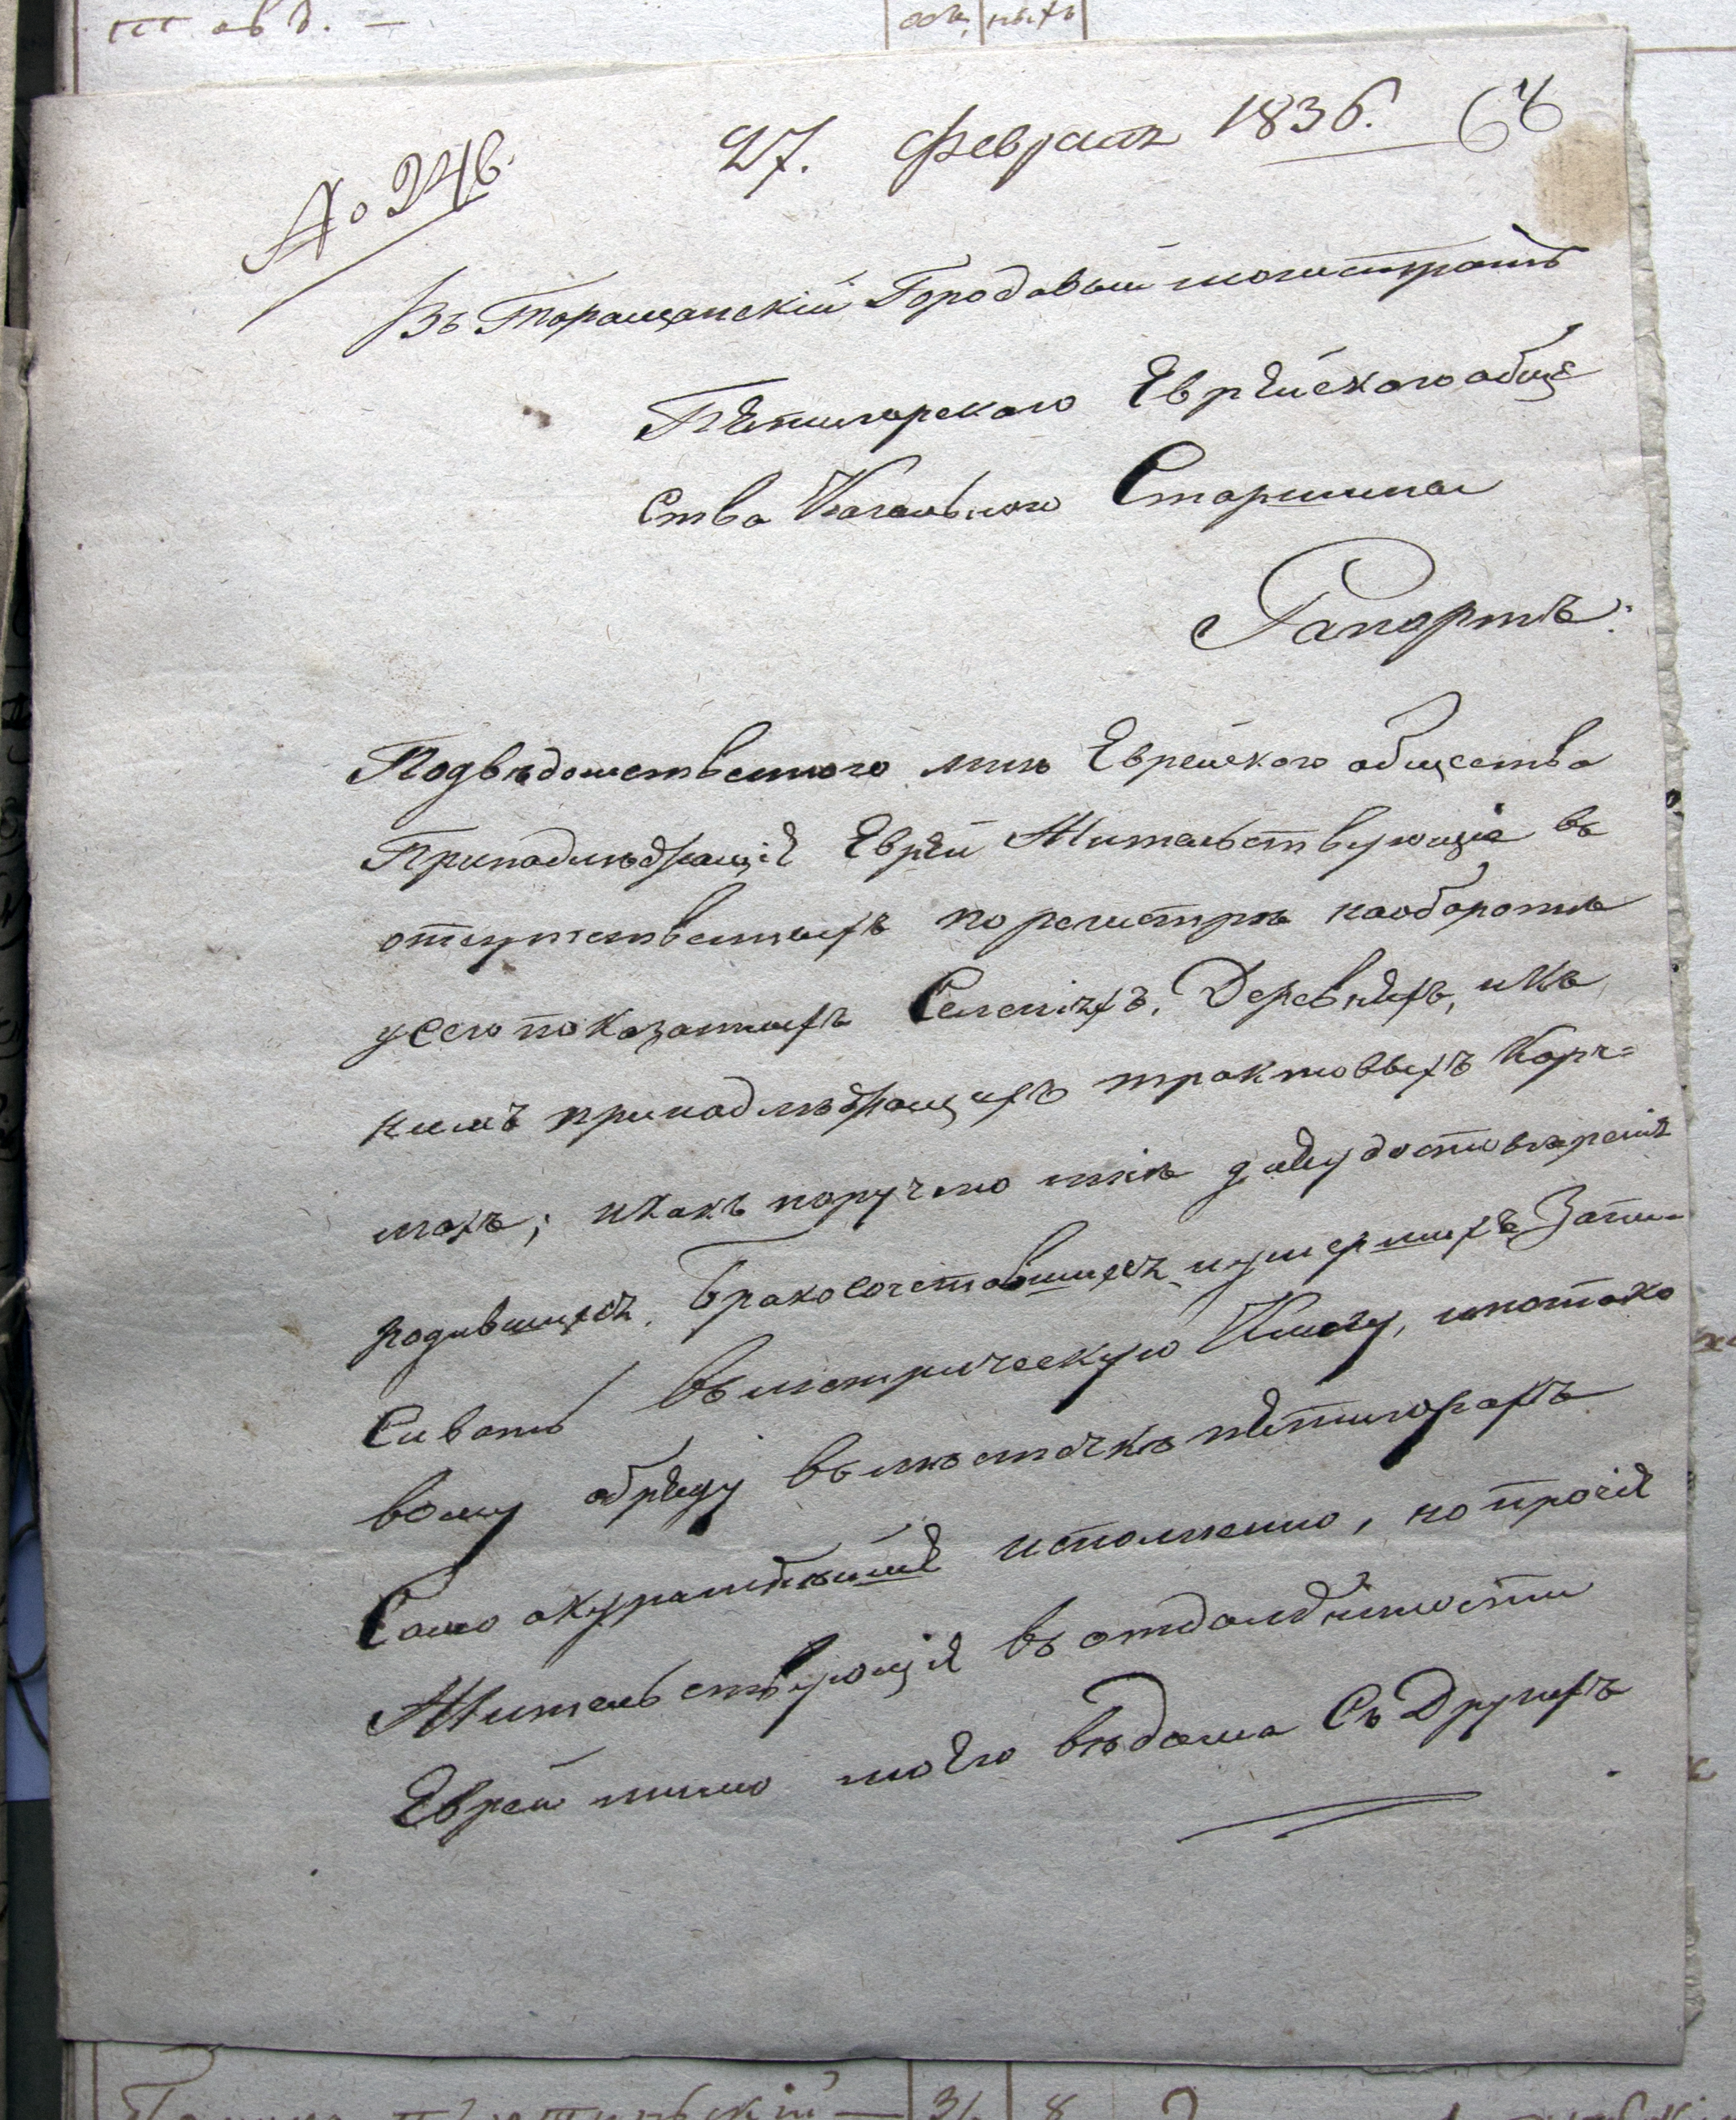 27. Февраля 1836. 64
№ 246.
Въ Таращанскій Городовый магистратъ
Пятигорского Еврейского обще
ства Кагального Старшины
Рапортъ:
Подведомственного мнѣ Еврейского общества
Принадлѣжащіе Евреи Жительствующіе въ
отсутственныхъ по регистрѣ наоборотѣ
усего показанныхъ Селеніяхъ, Деревняхъ, икъ
нимъ принадлѣжащихъ трактовыхъ Корч=
махъ; икакъ поручено мнѣ для удостовѣренія
родившихся, бракосочетавшихся, иумершихъ Запи-
сивать въ метрическую Книгу, ипотако
вому обряду въ мѣстечкѣ Пятигорахъ
Само акуратнѣйше исполнено, но прочіе
Жительствующіе въ отдалѣнности
Евреи мимо моего вѣдома Съ Другихъ